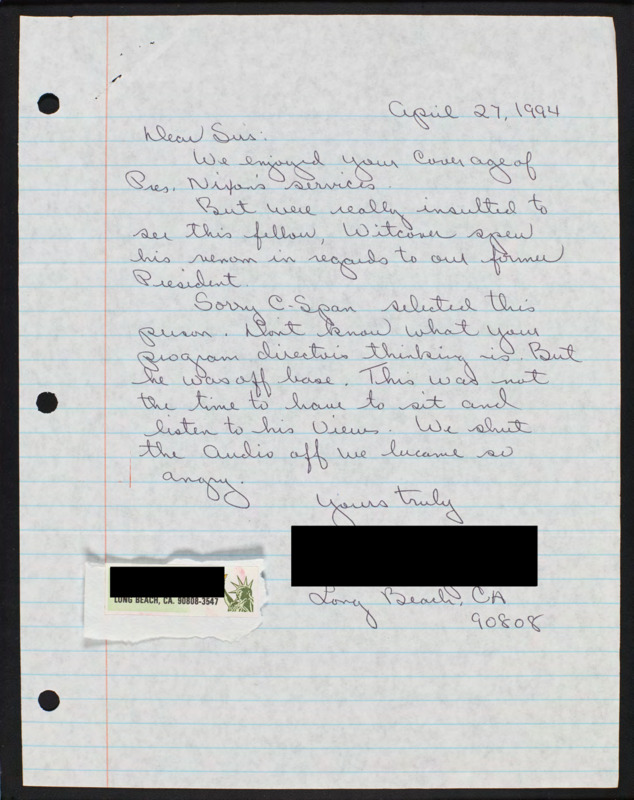 April 27, 1994
Dear Sirs:
We enjoyed your coverage of
Pres. Nixon's services.
But were really insulted to
see this fellow, Witcover spew
his venom in regards to our former
President.
Sorry C-Span selected this
person. Don't know what your
program directors thinking is. But
he was off base. This was not
the time to have to sit and
listen to his views. We shut
the audio off we became so
angry.
Yours truly
Long Beach, CA
90808
LONG BEACH, CA. 90808-3547